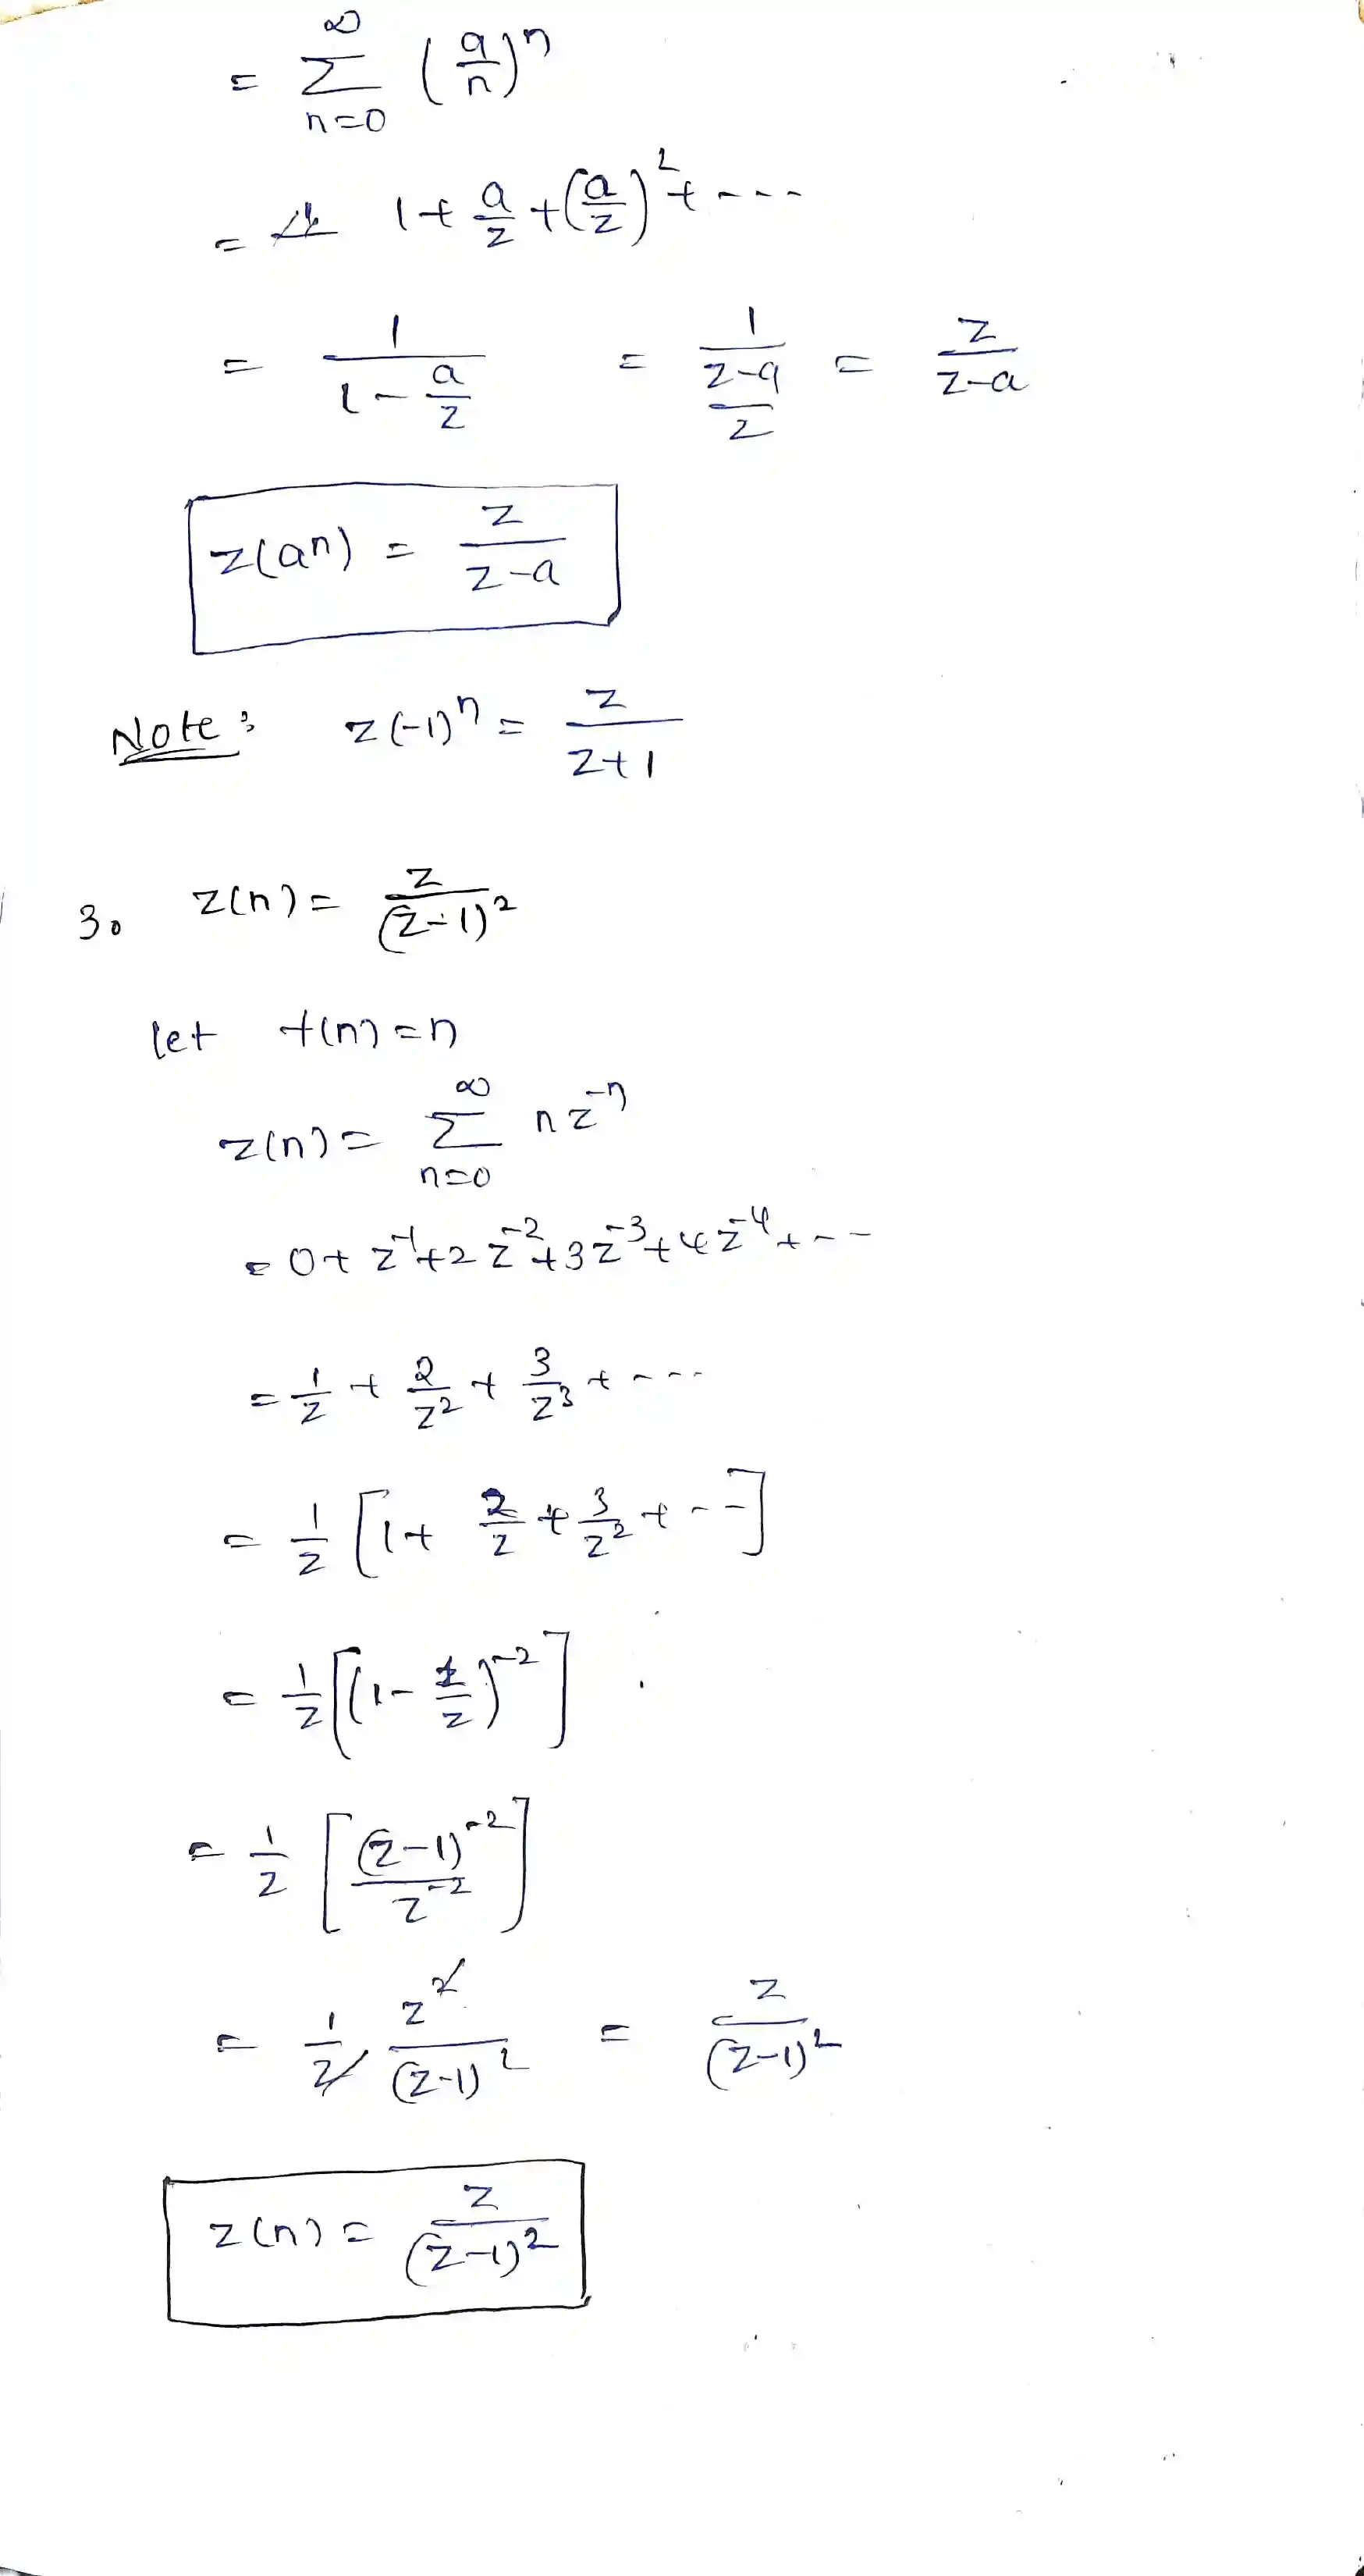 = ∑_{n=0}^{∞} (a/n)^n
= 1 + a/z + (a/z)^2 + ---
= 1/(1 - a/z) = 1/((z-a)/z) = z/(z-a)
z(a^n) = z/(z-a)
Note: z(-1)^n = z/(z+1)
3. z(n) = z/(z-1)^2
let f(n) = n
z(n) = ∑_{n=0}^{∞} n z^{-n}
= 0 + z^{-1} + 2 z^{-2} + 3 z^{-3} + 4 z^{-4} + --
= 1/z + 2/z^2 + 3/z^3 + ---
= 1/z [1 + 2/z + 3/z^2 + --]
= 1/z [(1 - 1/z)^{-2}]
= 1/z [(z-1)^{-2}/z^{-2}]
= 1/z z^2/(z-1)^2 = z/(z-1)^2
z(n) = z/(z-1)^2